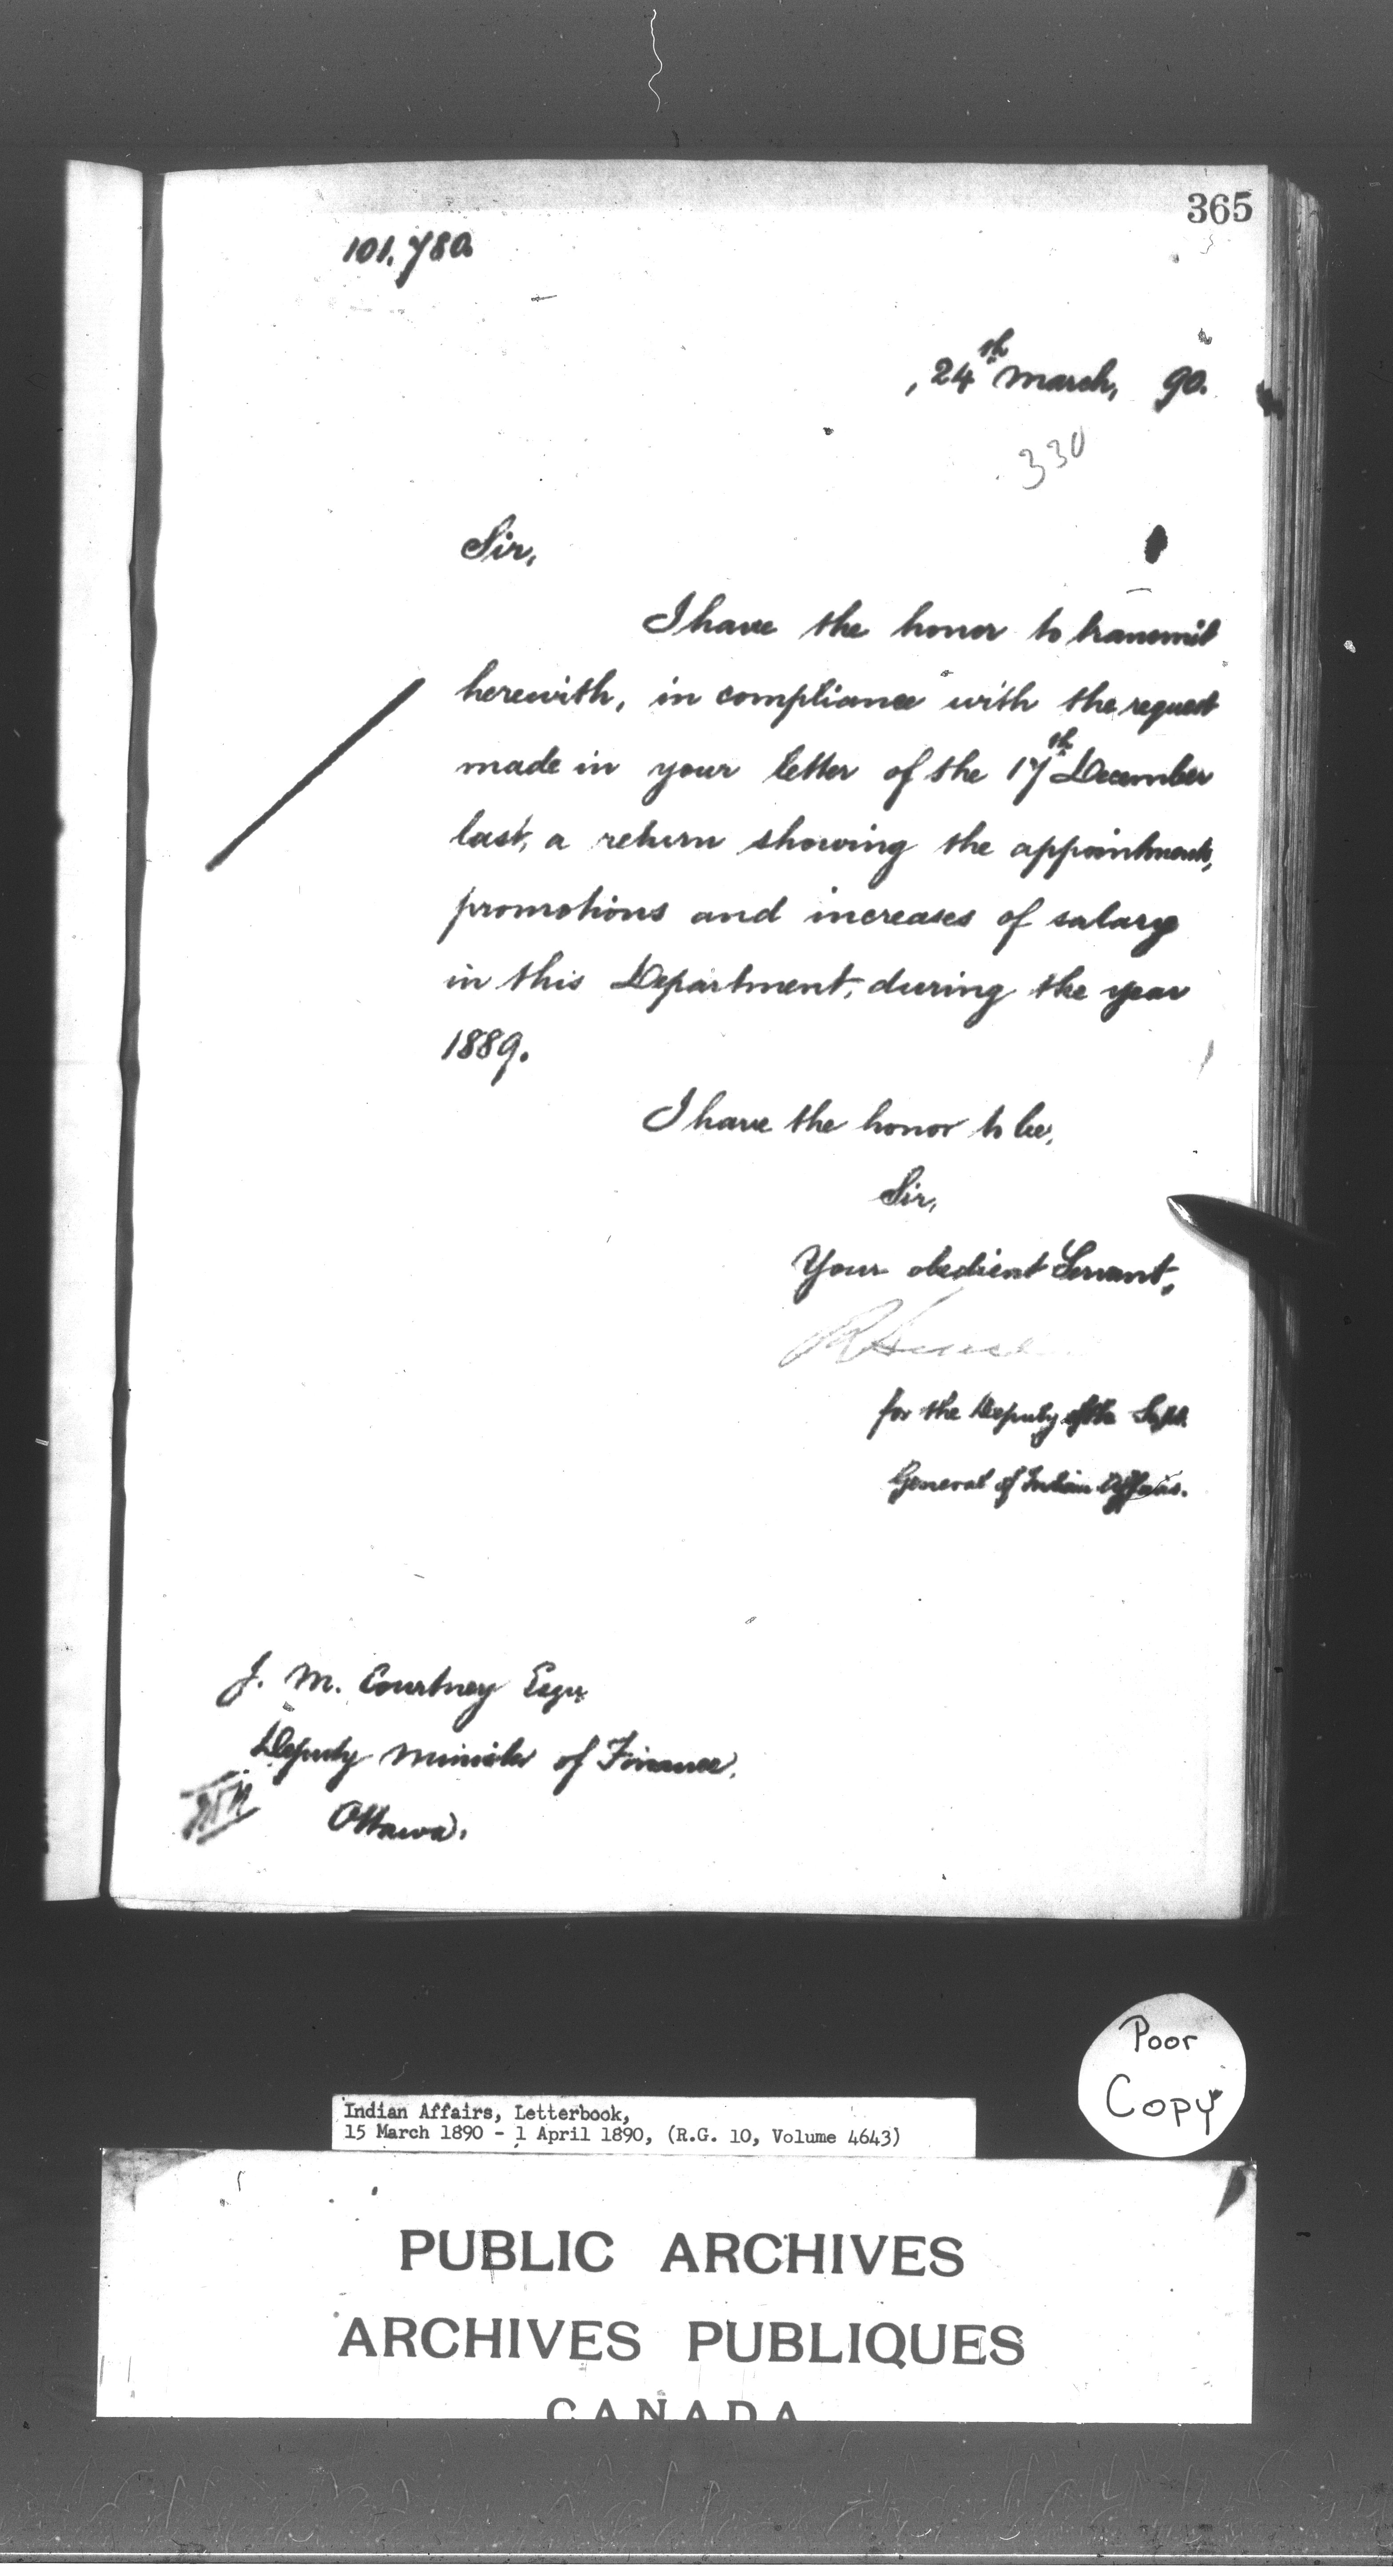 365
101.780
, 24th March, 90.
330
Sir,
I have the honor to transmit
herewith, in compliance with the request
made in your letter of the 17th December
last, a return showing the appointments,
promotions and increases of salary
in this Department, during the year
1889.
I have the honor to be,
Sir,
Your obedient Servant,
for the Deputy of the Supt.
General of Indian Affairs.
J. M. Courtney Esqr.
Deputy Minister of Finance,
Ottawa.
Poor
Copy
Indian Affairs, Letterbook,
15 March 1890 - 1 April 1890, (R.G. 10, Volume 4643)
PUBLIC ARCHIVES
ARCHIVES PUBLIQUES
CANADA